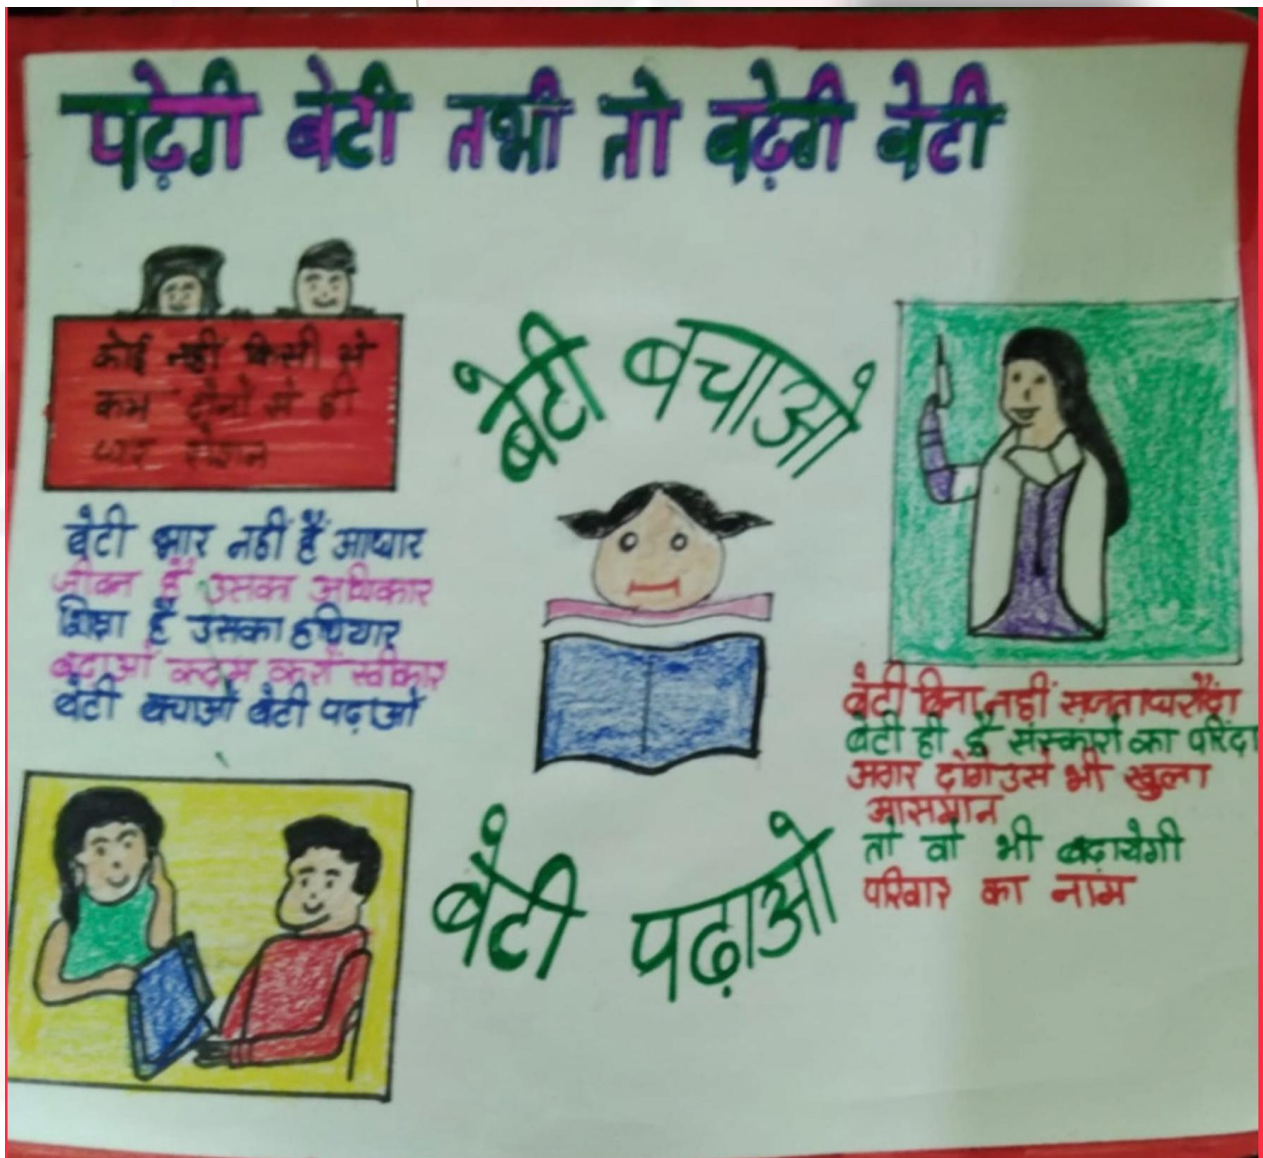 पढ़ेगी बेटी तभी तो बढ़ेगी बेटी
कोई नहीं किसी से
कम दोनों से ही
घर रोशन
बेटी बचाओ
बेटी भार नहीं हैं आधार
जीवन हैं उसका अधिकार
शिक्षा हैं उसका हथियार
बढ़ाओ कदम करो स्वीकार
बेटी बचाओ बेटी पढ़ाओ
बेटी बिना नहीं सजता घरौंदा
बेटी ही है संस्कारों का परिंदा
अगर दोगे उसे भी खुला
आसमान
तो वो भी बढ़ायेगी
परिवार का नाम
बेटी पढ़ाओ